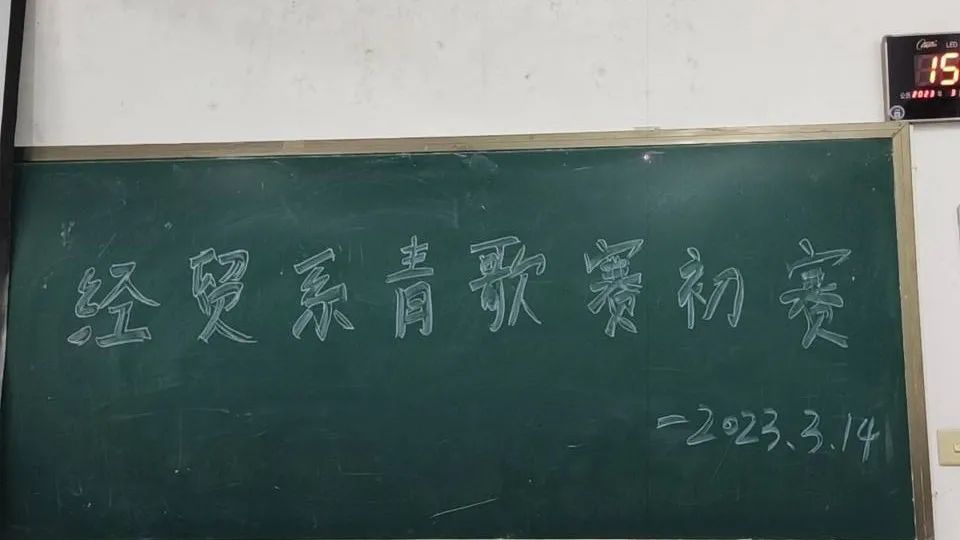 经贸系青歌赛初赛
-2023.3.14
LED
15
公历2023年3